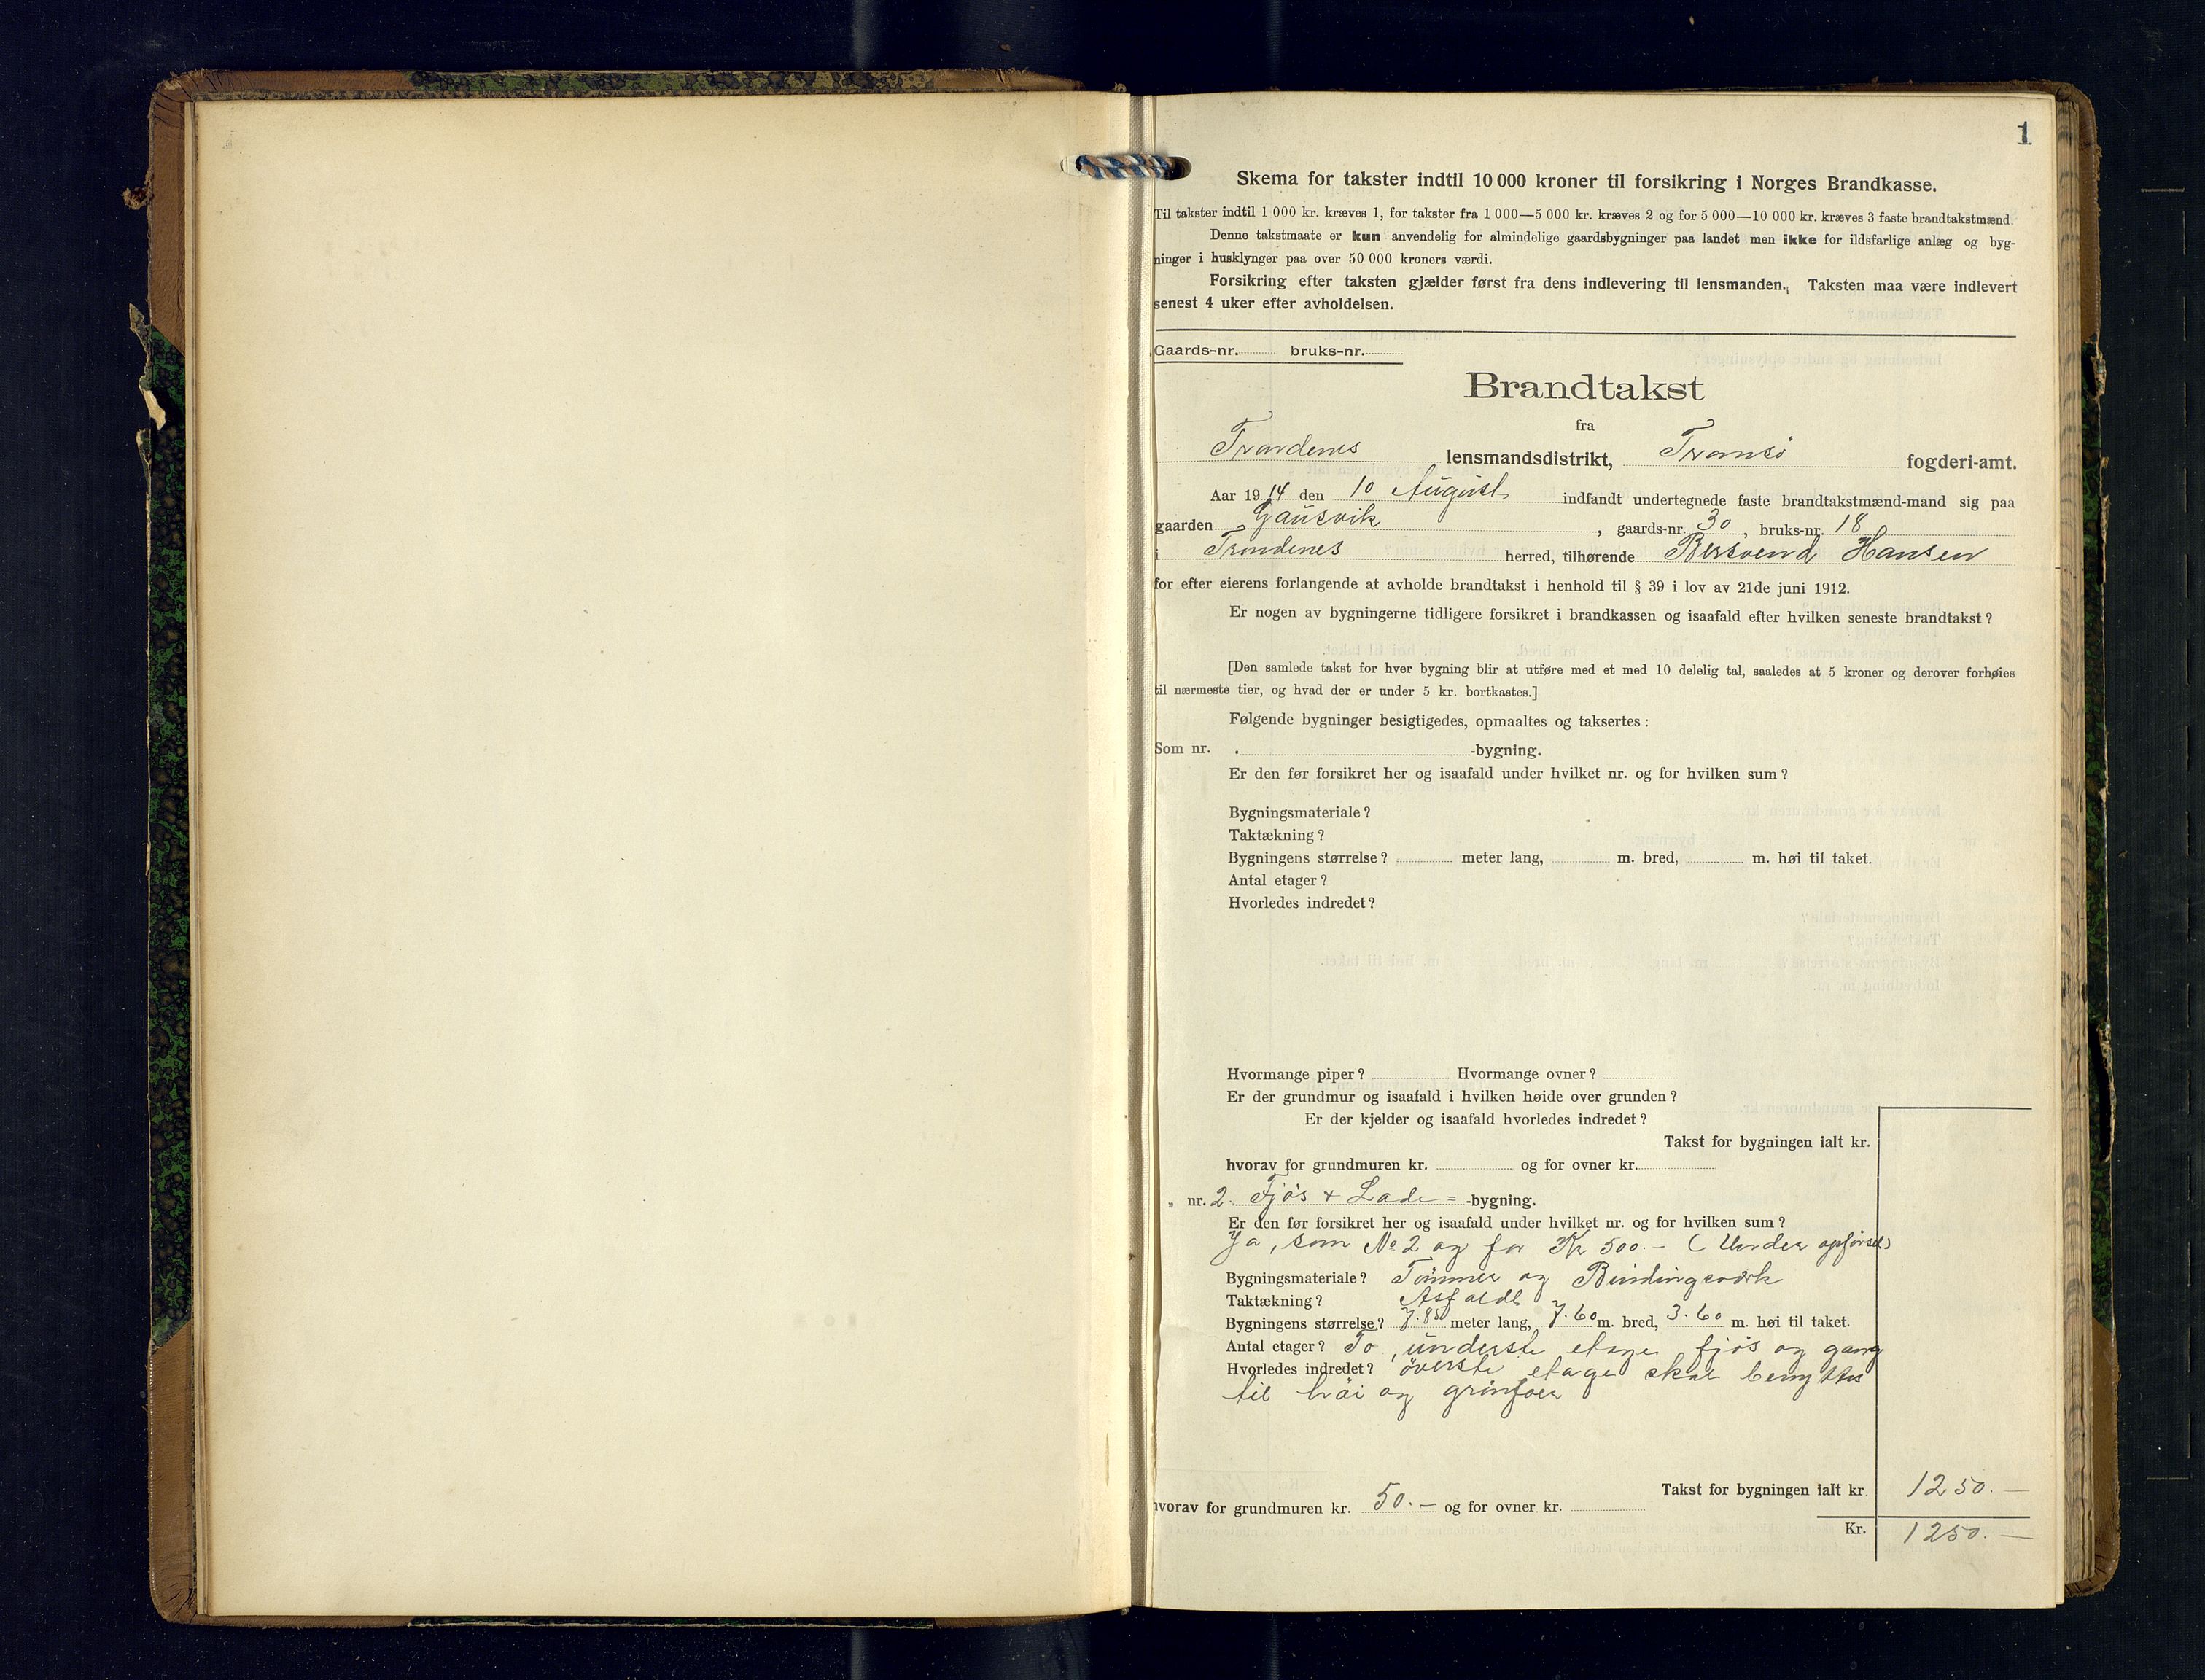 1
Skema for takster indtil 10 000 kroner til forsikring i Norges Brandkasse.
Til takster indtil 1 000 kr. kræves 1, for takster fra 1 000—5 000 kr. kræves 2 og for 5 000—10 000 kr. kræves 3 faste brandtakstmænd.
Denne takstmaate er kun anvendelig for almindelige gaardsbygninger paa landet men ikke for ildsfarlige anlæg og byg-
ninger i husklynger paa over 50 000 kroners værdi.
Forsikring efter taksten gjælder først fra dens indlevering til lensmanden. Taksten maa være indlevert
senest 4 uker efter avholdelsen.
Gaards-nr. bruks-nr.
Brandtakst
fra
Trondenes lensmandsdistrikt, Tromsö fogderi-amt.
Aar 1914 den 10 August indfandt undertegnede faste brandtakstmænd-mand sig paa
gaarden Gausvik, gaards-nr. 30, bruks-nr. 18
i Trondenes herred, tilhørende Bersvend Hansen
for efter eierens forlangende at avholde brandtakst i henhold til § 39 i lov av 21de juni 1912.
Er nogen av bygningerne tidligere forsikret i brandkassen og isaafald efter hvilken seneste brandtakst?
[Den samlede takst for hver bygning blir at utføre med et med 10 delelig tal, saaledes at 5 kroner og derover forhøies
til nærmeste tier, og hvad der er under 5 kr. bortkastes.]
Følgende bygninger besigtigedes, opmaaltes og taksertes :
Som nr. . -bygning.
Er den før forsikret her og isaafald under hvilket nr. og for hvilken sum?
Bygningsmateriale?
Taktækning?
Bygningens størrelse? meter lang, m. bred, m. høi til taket.
Antal etager?
Hvorledes indredet?
Hvormange piper? Hvormange ovner?
Er der grundmur og isaafald i hvilken høide over grunden?
Er der kjelder og isaafald hvorledes indredet?
Takst for bygningen ialt kr.
hvorav for grundmuren kr. og for ovner kr.
„ nr. 2. Fjös + Lade = -bygning.
Er den før forsikret her og isaafald under hvilket nr. og for hvilken sum?
Ja, som No 2 og for Kr 500.- (Under opförsel)
Bygningsmateriale? Tömmer og Bindingsværk
Taktækning? Asfaldt
Bygningens størrelse? 7.80 meter lang, 7.60 m. bred, 3.60 m. høi til taket.
Antal etager? To, underste etage fjös og gang
Hvorledes indredet? överste etage skal benyttes
til höi og grönfoer
Takst for bygningen ialt kr. 1250.—
hvorav for grundmuren kr. 50.— og for ovner kr.
Kr. 1250.—